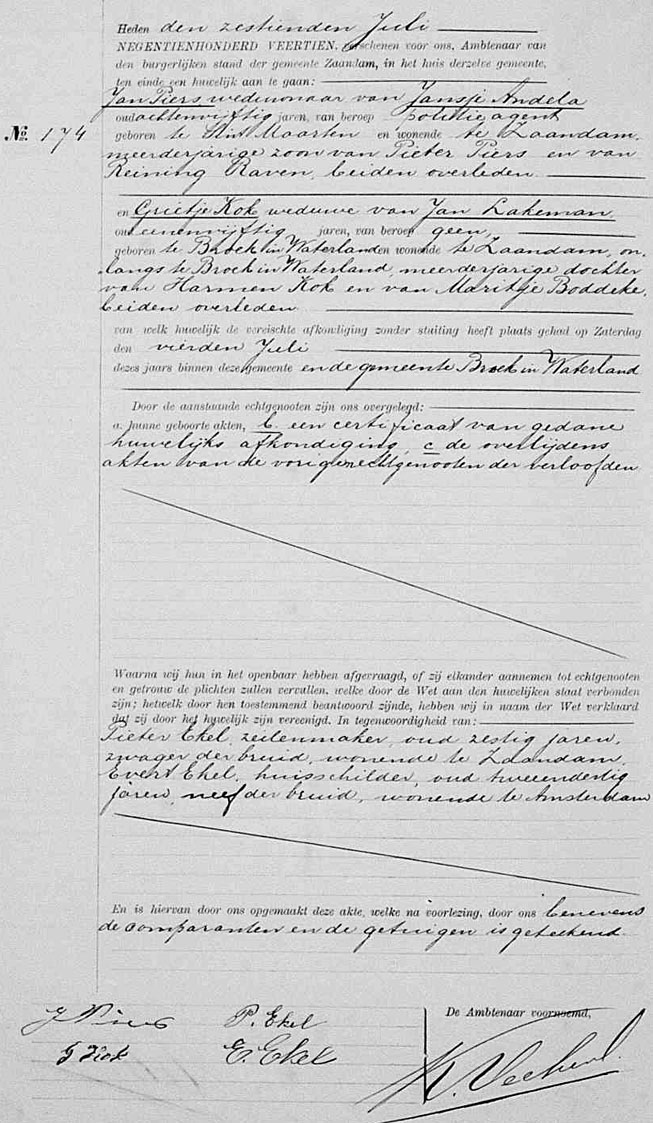 Heden den zestienden Juli
NEGENTIENHONDERD VEERTIEN, verschenen voor ons, Ambtenaar van
den burgerlijken stand der gemeente Zaandam, in het huis derzelve gemeente,
ten einde een huwelijk aan te gaan:
Jan Piers weduwnaar van Jansje Andela
oud achtenvijftig jaren, van beroep politieagent
No. 174
geboren te Sint Maarten en wonende te Zaandam,
meerderjarige zoon van Pieter Piers en van
Reining Raven, beiden overleden.
en Grietje Kok weduwe van Jan Lakeman
oud eenenvijftig jaren, van beroep geen,
geboren te Broek in Waterland en wonende te Zaandam, on-
langs te Broek in Waterland, meerderjarige dochter
van Harmen Kok en van Maritje Boddeke,
beiden overleden.
van welk huwelijk de vereischte afkondiging zonder stuiting heeft plaats gehad op Zaterdag
den vierden Juli
dezes jaars binnen deze gemeente en de gemeente Broek in Waterland
Door de aanstaande echtgenooten zijn ons overgelegd:
a. hunne geboorte akten, b. een certificaat van gedane
huwelijks afkondiging, c de overlijdens
akten van de vorige echtgenooten der verloofden
Waarna wij hun in het openbaar hebben afgevraagd, of zij elkander aannemen tot echtgenooten
en getrouw de plichten zullen vervullen, welke door de Wet aan den huwelijken staat verbonden
zijn; hetwelk door hen toestemmend beantwoord zijnde, hebben wij in naam der Wet verklaard
dat zij door het huwelijk zijn vereenigd. In tegenwoordigheid van:
Pieter Ekel, zeilenmaker, oud zestig jaren,
zwager der bruid, wonende te Zaandam,
Evert Ekel, huisschilder, oud tweeendertig
jaren, neef der bruid, wonende te Amsterdam
En is hiervan door ons opgemaakt deze akte, welke na voorlezing, door ons benevens
de comparanten en de getuigen is geteekend.
De Ambtenaar voornoemd,
J Piers P. Ekel
G Kok E. Ekel